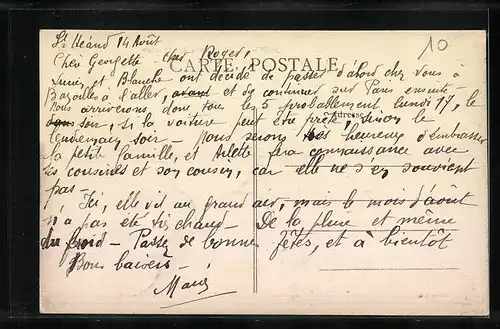 St Héand 14 Août
10
Chère Georgette cher Roger,
CARTE POSTALE
Lucien et Blanche ont décidé de passer d'abord chez vous à
Bazoilles à l'aller, avant et de continuer sur Paris ensuite -
nous arriverons donc tous les 5 probablement lundi 17, le
Adresse
soir, si la voiture peut être prête, sinon le
lendemain soir - Nous serons très heureux d'embrasser
la petite famille, et Arlette fera connaissance avec
ses cousines et son cousin, car elle ne s'en souvient
pas -
Ici, elle vit au grand air, mais le mois d'août
n'a pas été très chaud - De la pluie et même
du froid - Passez de bonnes fêtes, et à bientôt
Bons baisers -
Marie